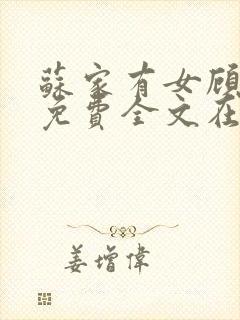 蘇家有女顾
免費全文在
姜增偉